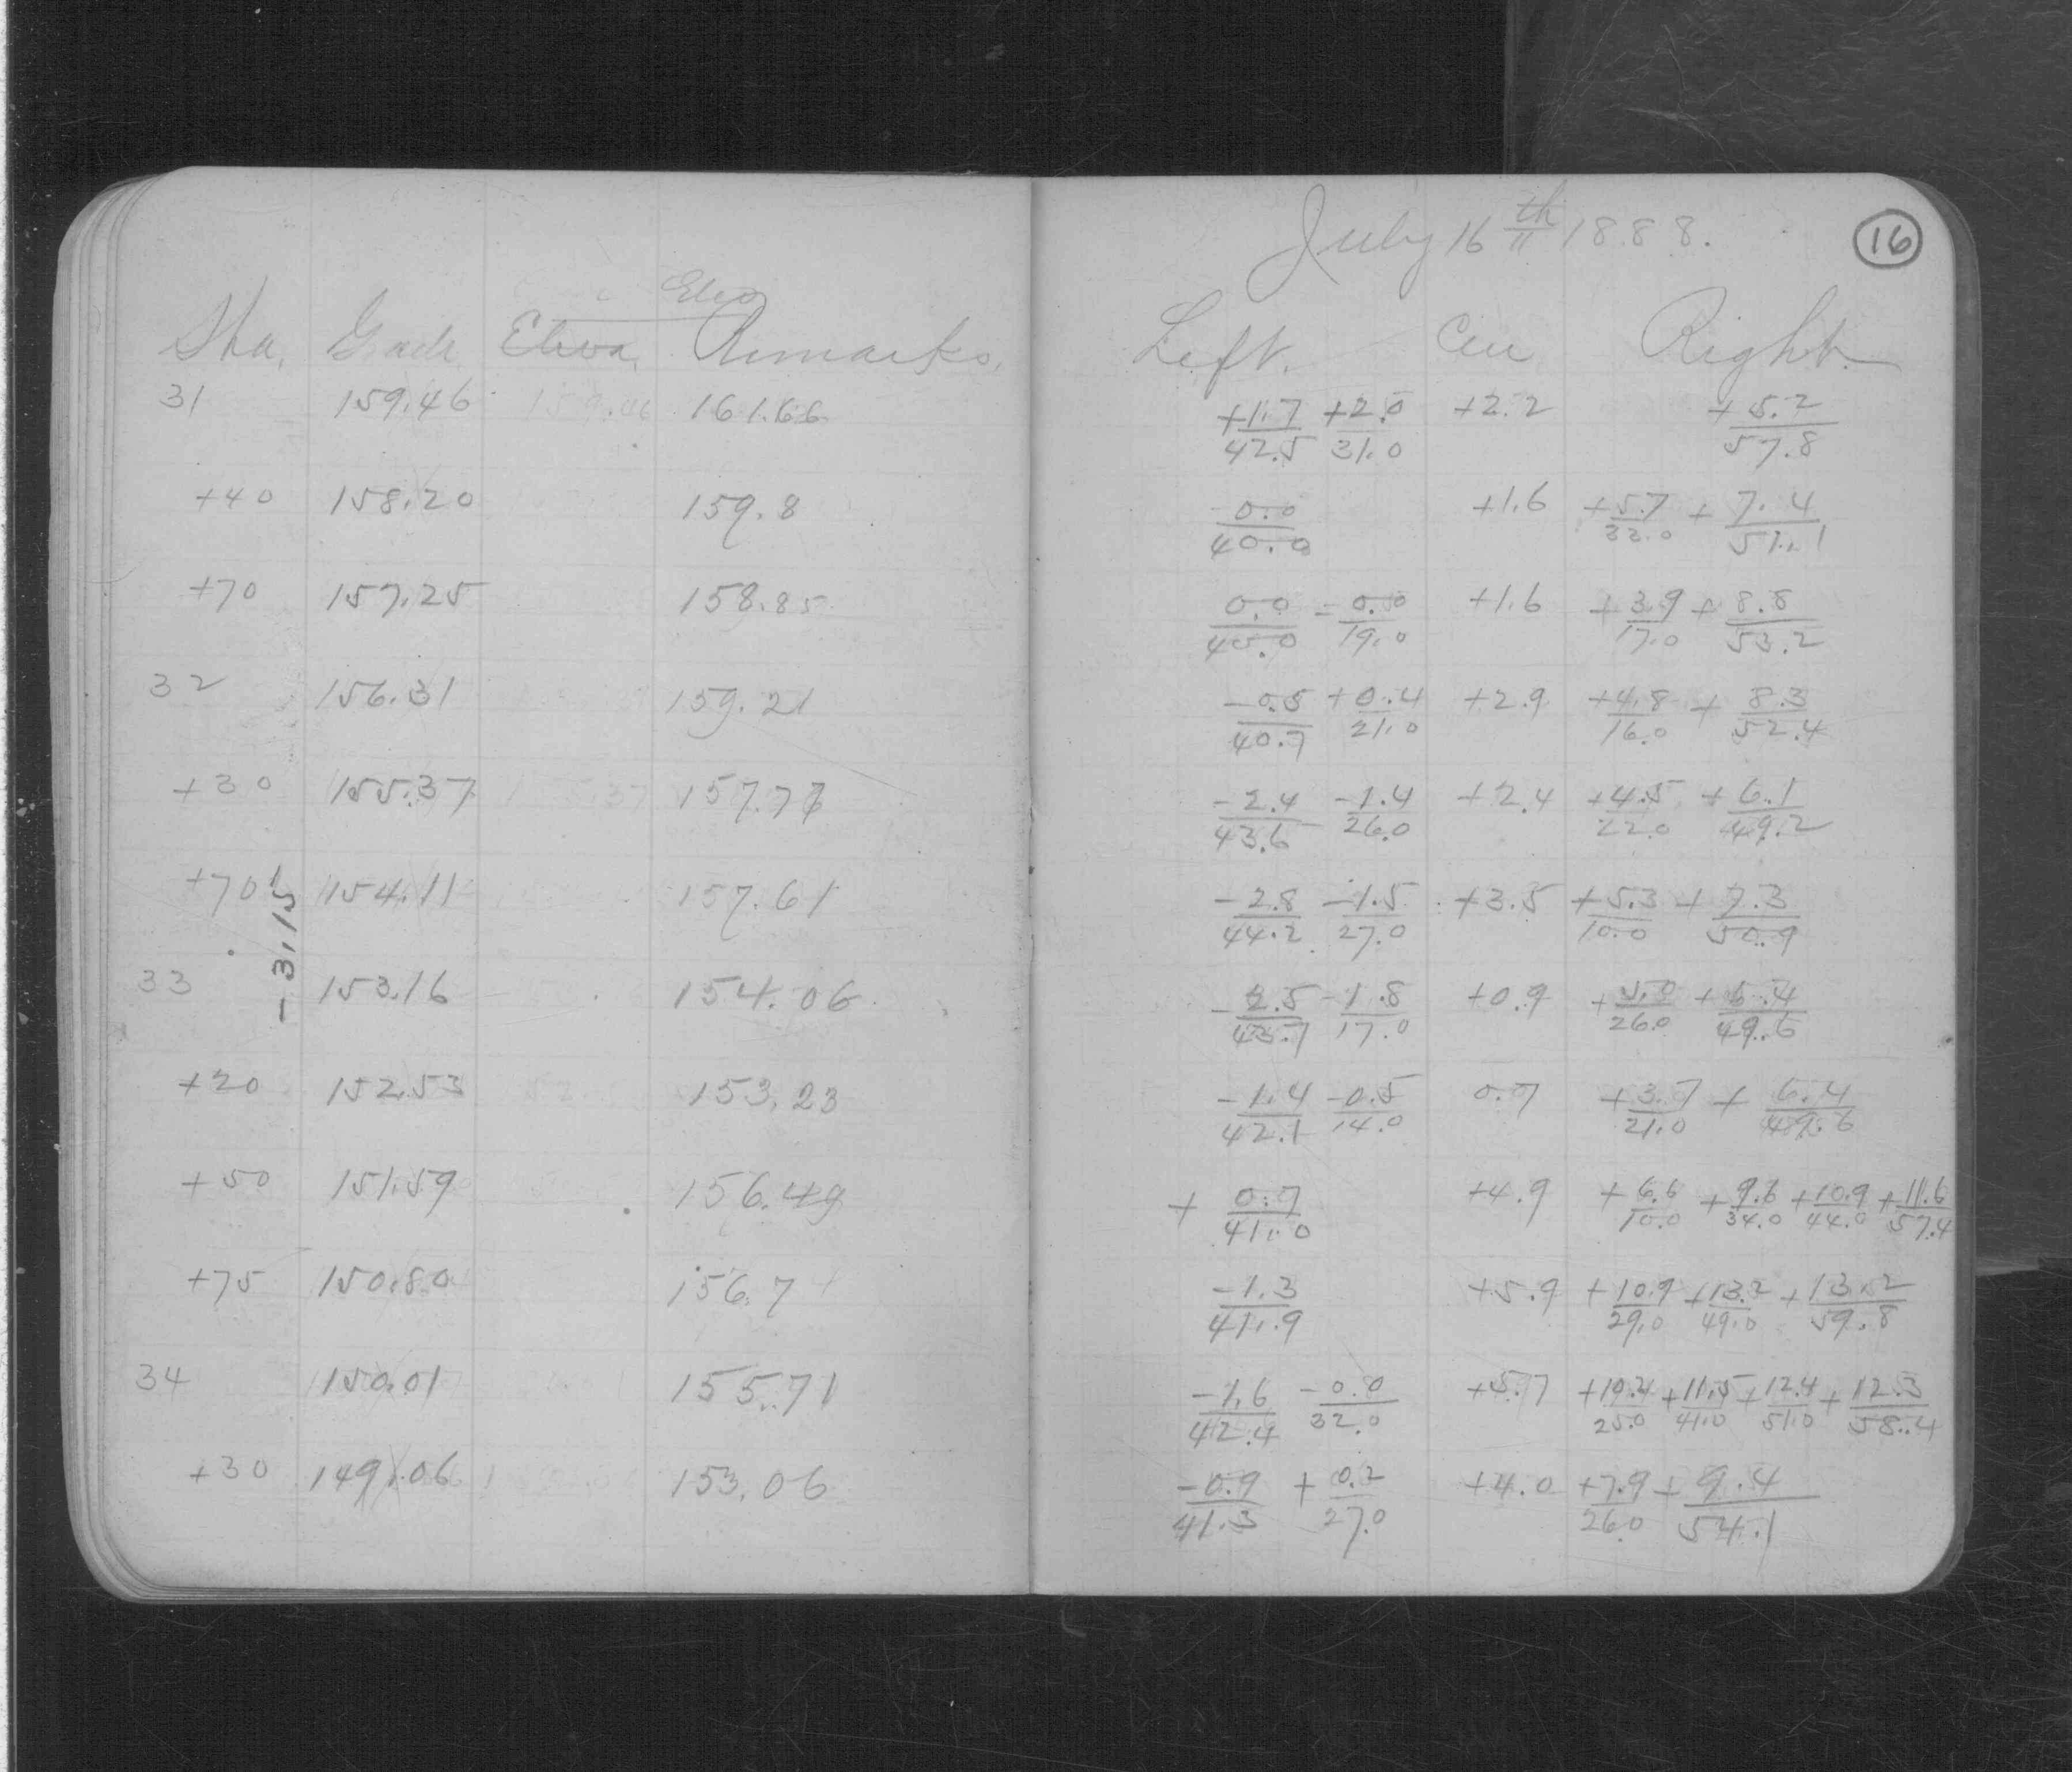 July 16th 1888.
16
Elev
Sta. Grade Eleva. Remarks.
Left. Cen Right.
31 159.46 159.46 161.66 +1.7/42.5 +2.0/31.0 +2.2 +5.2/57.8
+40 158.20 159.8 0.0/40.0 +1.6 +5.7/32.0 +7.4/51.1
+70 157.25 158.85 0.0/40.0 -0.0/19.0 +1.6 +3.9/17.0 +8.8/53.2
32 156.31 159.21 -0.5/40.7 +0.4/21.0 +2.9 +4.8/16.0 +8.3/52.4
+30 155.37 157.77 -2.4/43.6 -1.4/26.0 +2.4 +4.5/22.0 +6.1/49.2
+70 154.11 157.61 -2.8/44.2 -1.5/27.0 +3.5 +5.3/10.0 +7.3/50.9
-3.15
33 153.16 154.06 -2.5/43.7 -1.8/17.0 +0.9 +5.0/26.0 +6.4/49.6
+20 152.53 153.23 -1.4/42.1 -0.5/14.0 0.7 +3.7/21.0 +6.4/49.6
+50 151.59 156.49 +0.7/41.0 +4.9 +6.6/10.0 +9.6/34.0 +10.9/44.0 +11.6/57.4
+75 150.80 156.7 -1.3/41.9 +5.9 +10.9/29.0 +13.2/49.0 +13.2/59.8
34 150.01 155.71 -1.6/42.4 -0.0/32.0 +5.7 +10.4/25.0 +11.5/41.0 +12.4/51.0 +12.3/58.4
+30 149.06 153.06 -0.9/41.3 +0.2/27.0 +4.0 +7.9/26.0 +9.4/54.1